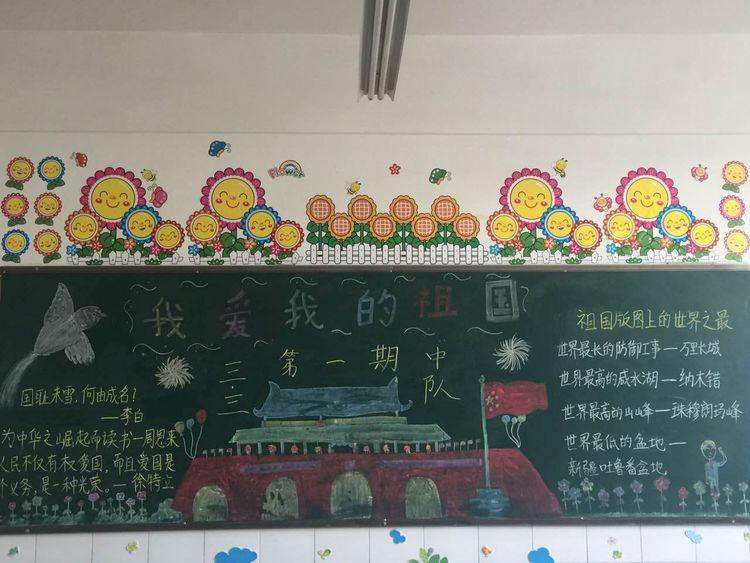 Flower
我爱我的祖国
第一期
三.三中队
国耻未雪，何由成名？
——李白
为中华之崛起而读书—周恩来
人民不仅有权爱国，而且爱国是
个义务，是一种光荣。—徐特立
祖国版图上的世界之最
世界最长的防御工事—万里长城
世界最高的咸水湖—纳木错
世界最高的山峰—珠穆朗玛峰
世界最低的盆地—
新疆吐鲁番盆地